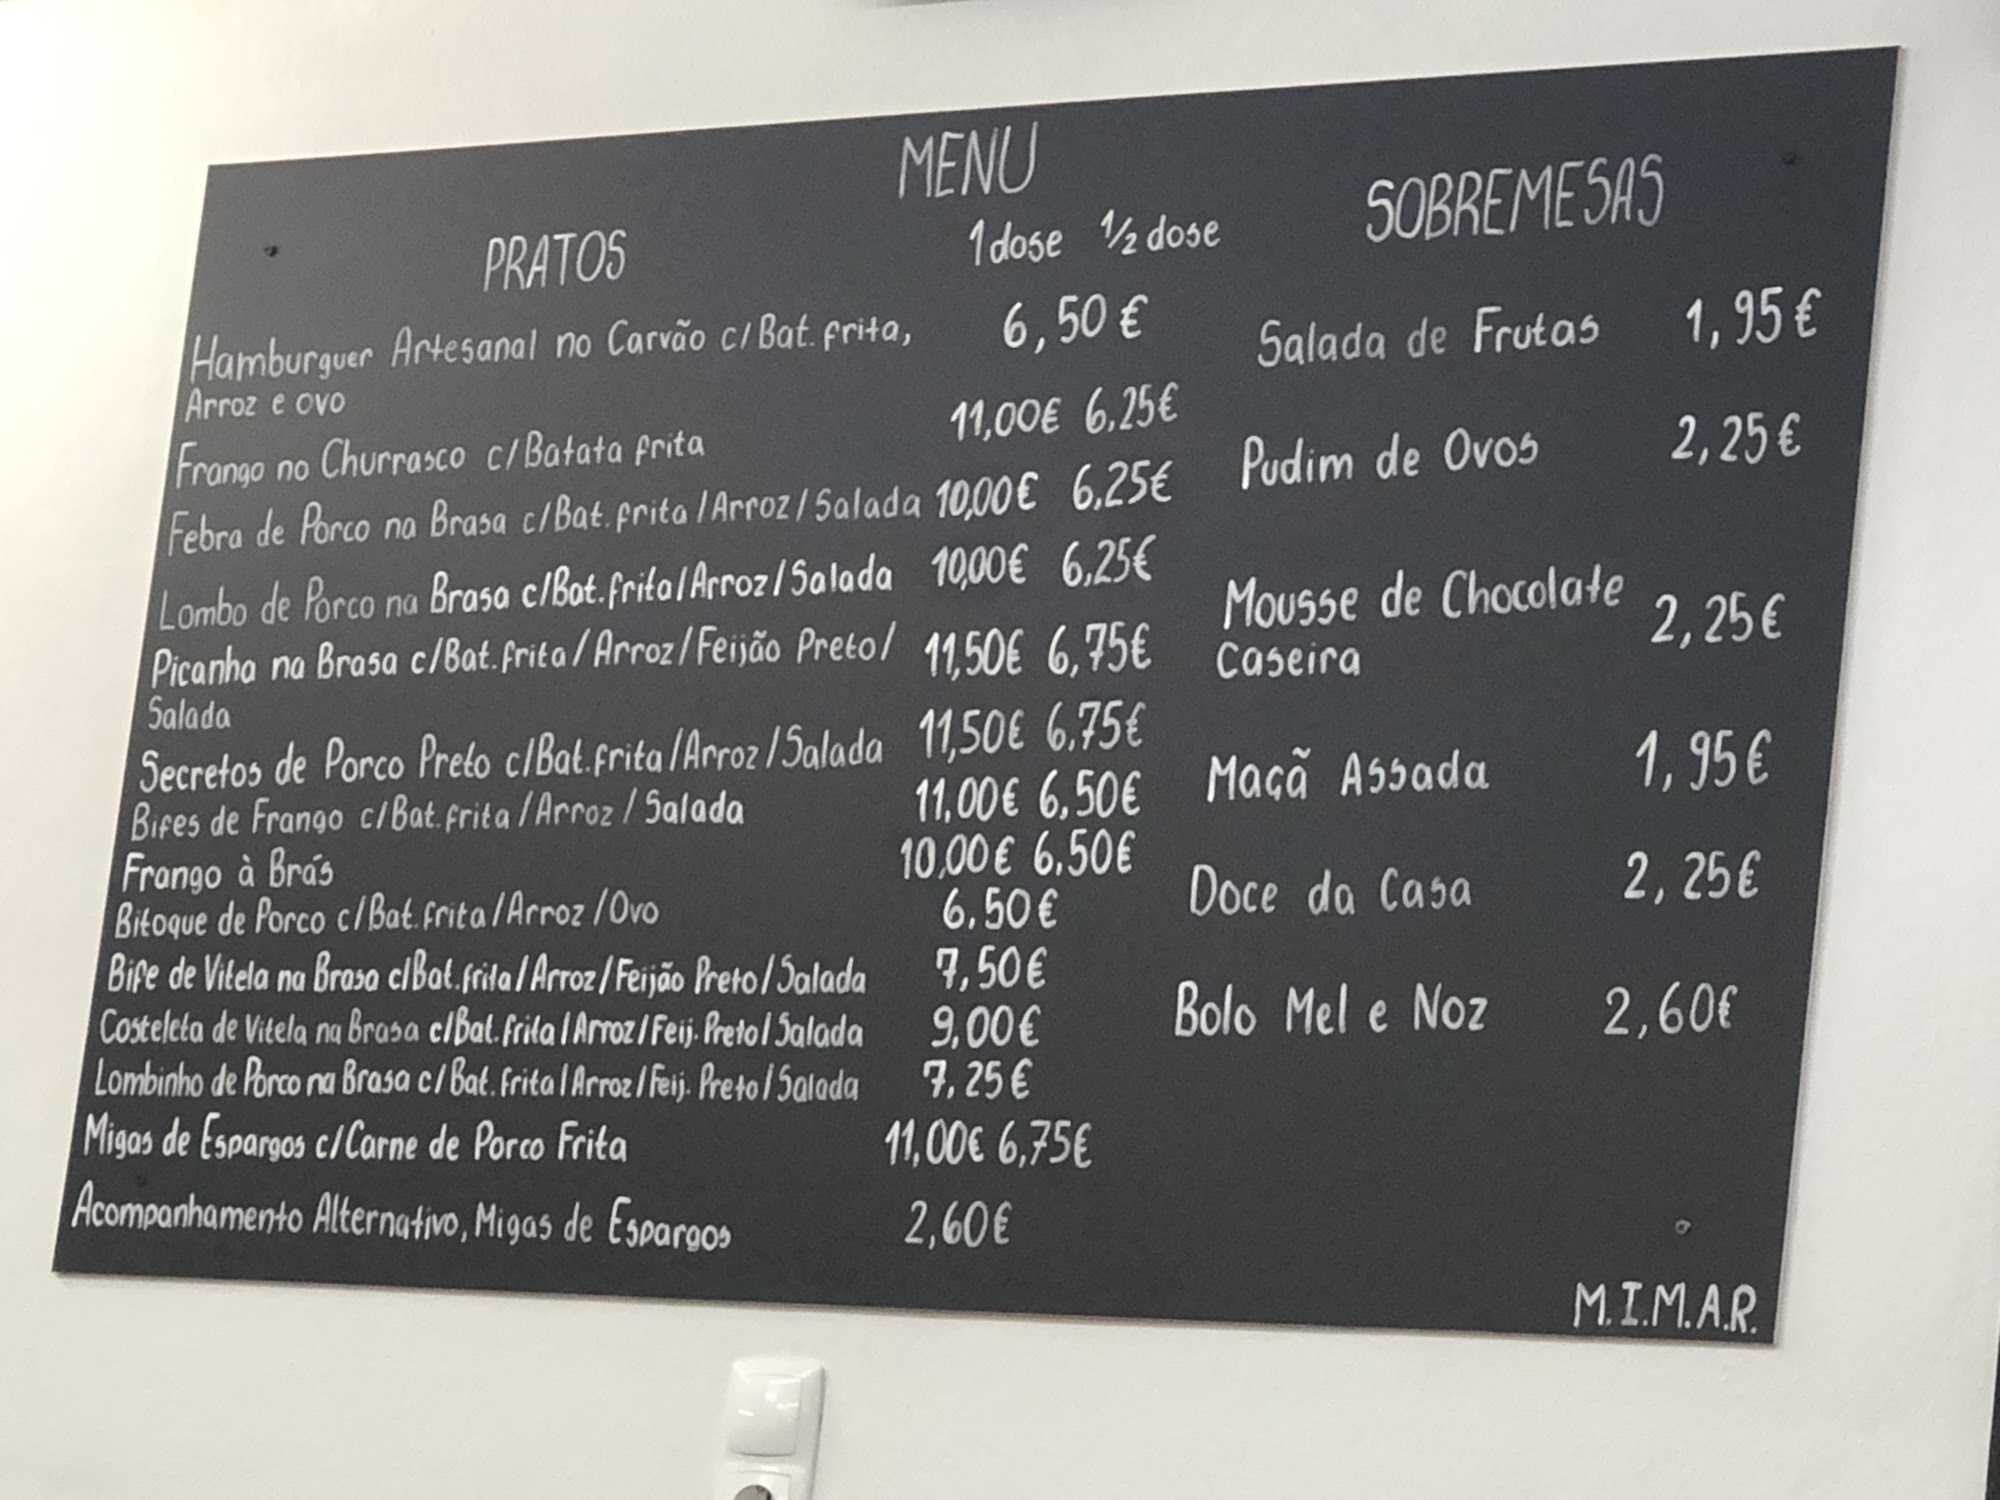 MENU
PRATOS 1 dose 1/2 dose
Hamburguer Artesanal no Carvão c/Bat. frita, 6,50€
Arroz e ovo
Frango no Churrasco c/Batata frita 11,00€ 6,25€
Febra de Porco na Brasa c/Bat. frita/Arroz/Salada 10,00€ 6,25€
Lombo de Porco na Brasa c/Bat. frita/Arroz/Salada 10,00€ 6,25€
Picanha na Brasa c/Bat. frita/Arroz/Feijão Preto/ 11,50€ 6,75€
Salada
Secretos de Porco Preto c/Bat. frita/Arroz/Salada 11,50€ 6,75€
Bifes de Frango c/Bat. frita/Arroz/Salada 11,00€ 6,50€
Frango à Brás 10,00€ 6,50€
Bitoque de Porco c/Bat. frita/Arroz/Ovo 6,50€
Bife de Vitela na Brasa c/Bat. frita/Arroz/Feijão Preto/Salada 7,50€
Costeleta de Vitela na Brasa c/Bat. frita/Arroz/Feij. Preto/Salada 9,00€
Lombinho de Porco na Brasa c/Bat. frita/Arroz/Feij. Preto/Salada 7,25€
Migas de Espargos c/Carne de Porco Frita 11,00€ 6,75€
Acompanhamento Alternativo, Migas de Espargos 2,60€
SOBREMESAS
Salada de Frutas 1,95€
Pudim de Ovos 2,25€
Mousse de Chocolate 2,25€
Caseira
Maçã Assada 1,95€
Doce da Casa 2,25€
Bolo Mel e Noz 2,60€
M.I.M.A.R.